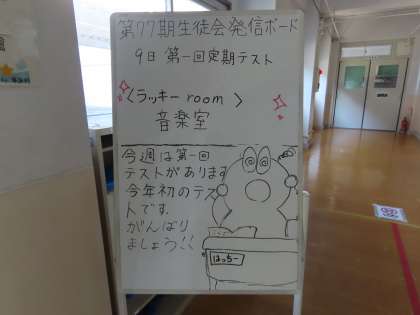 第77期生徒会発信ボード
9日 第一回定期テスト
〈ラッキーroom〉
音楽室
今週は第一回
テストがあります
今年初のテス
トです。
がんばり
ましょう!!
はっちー